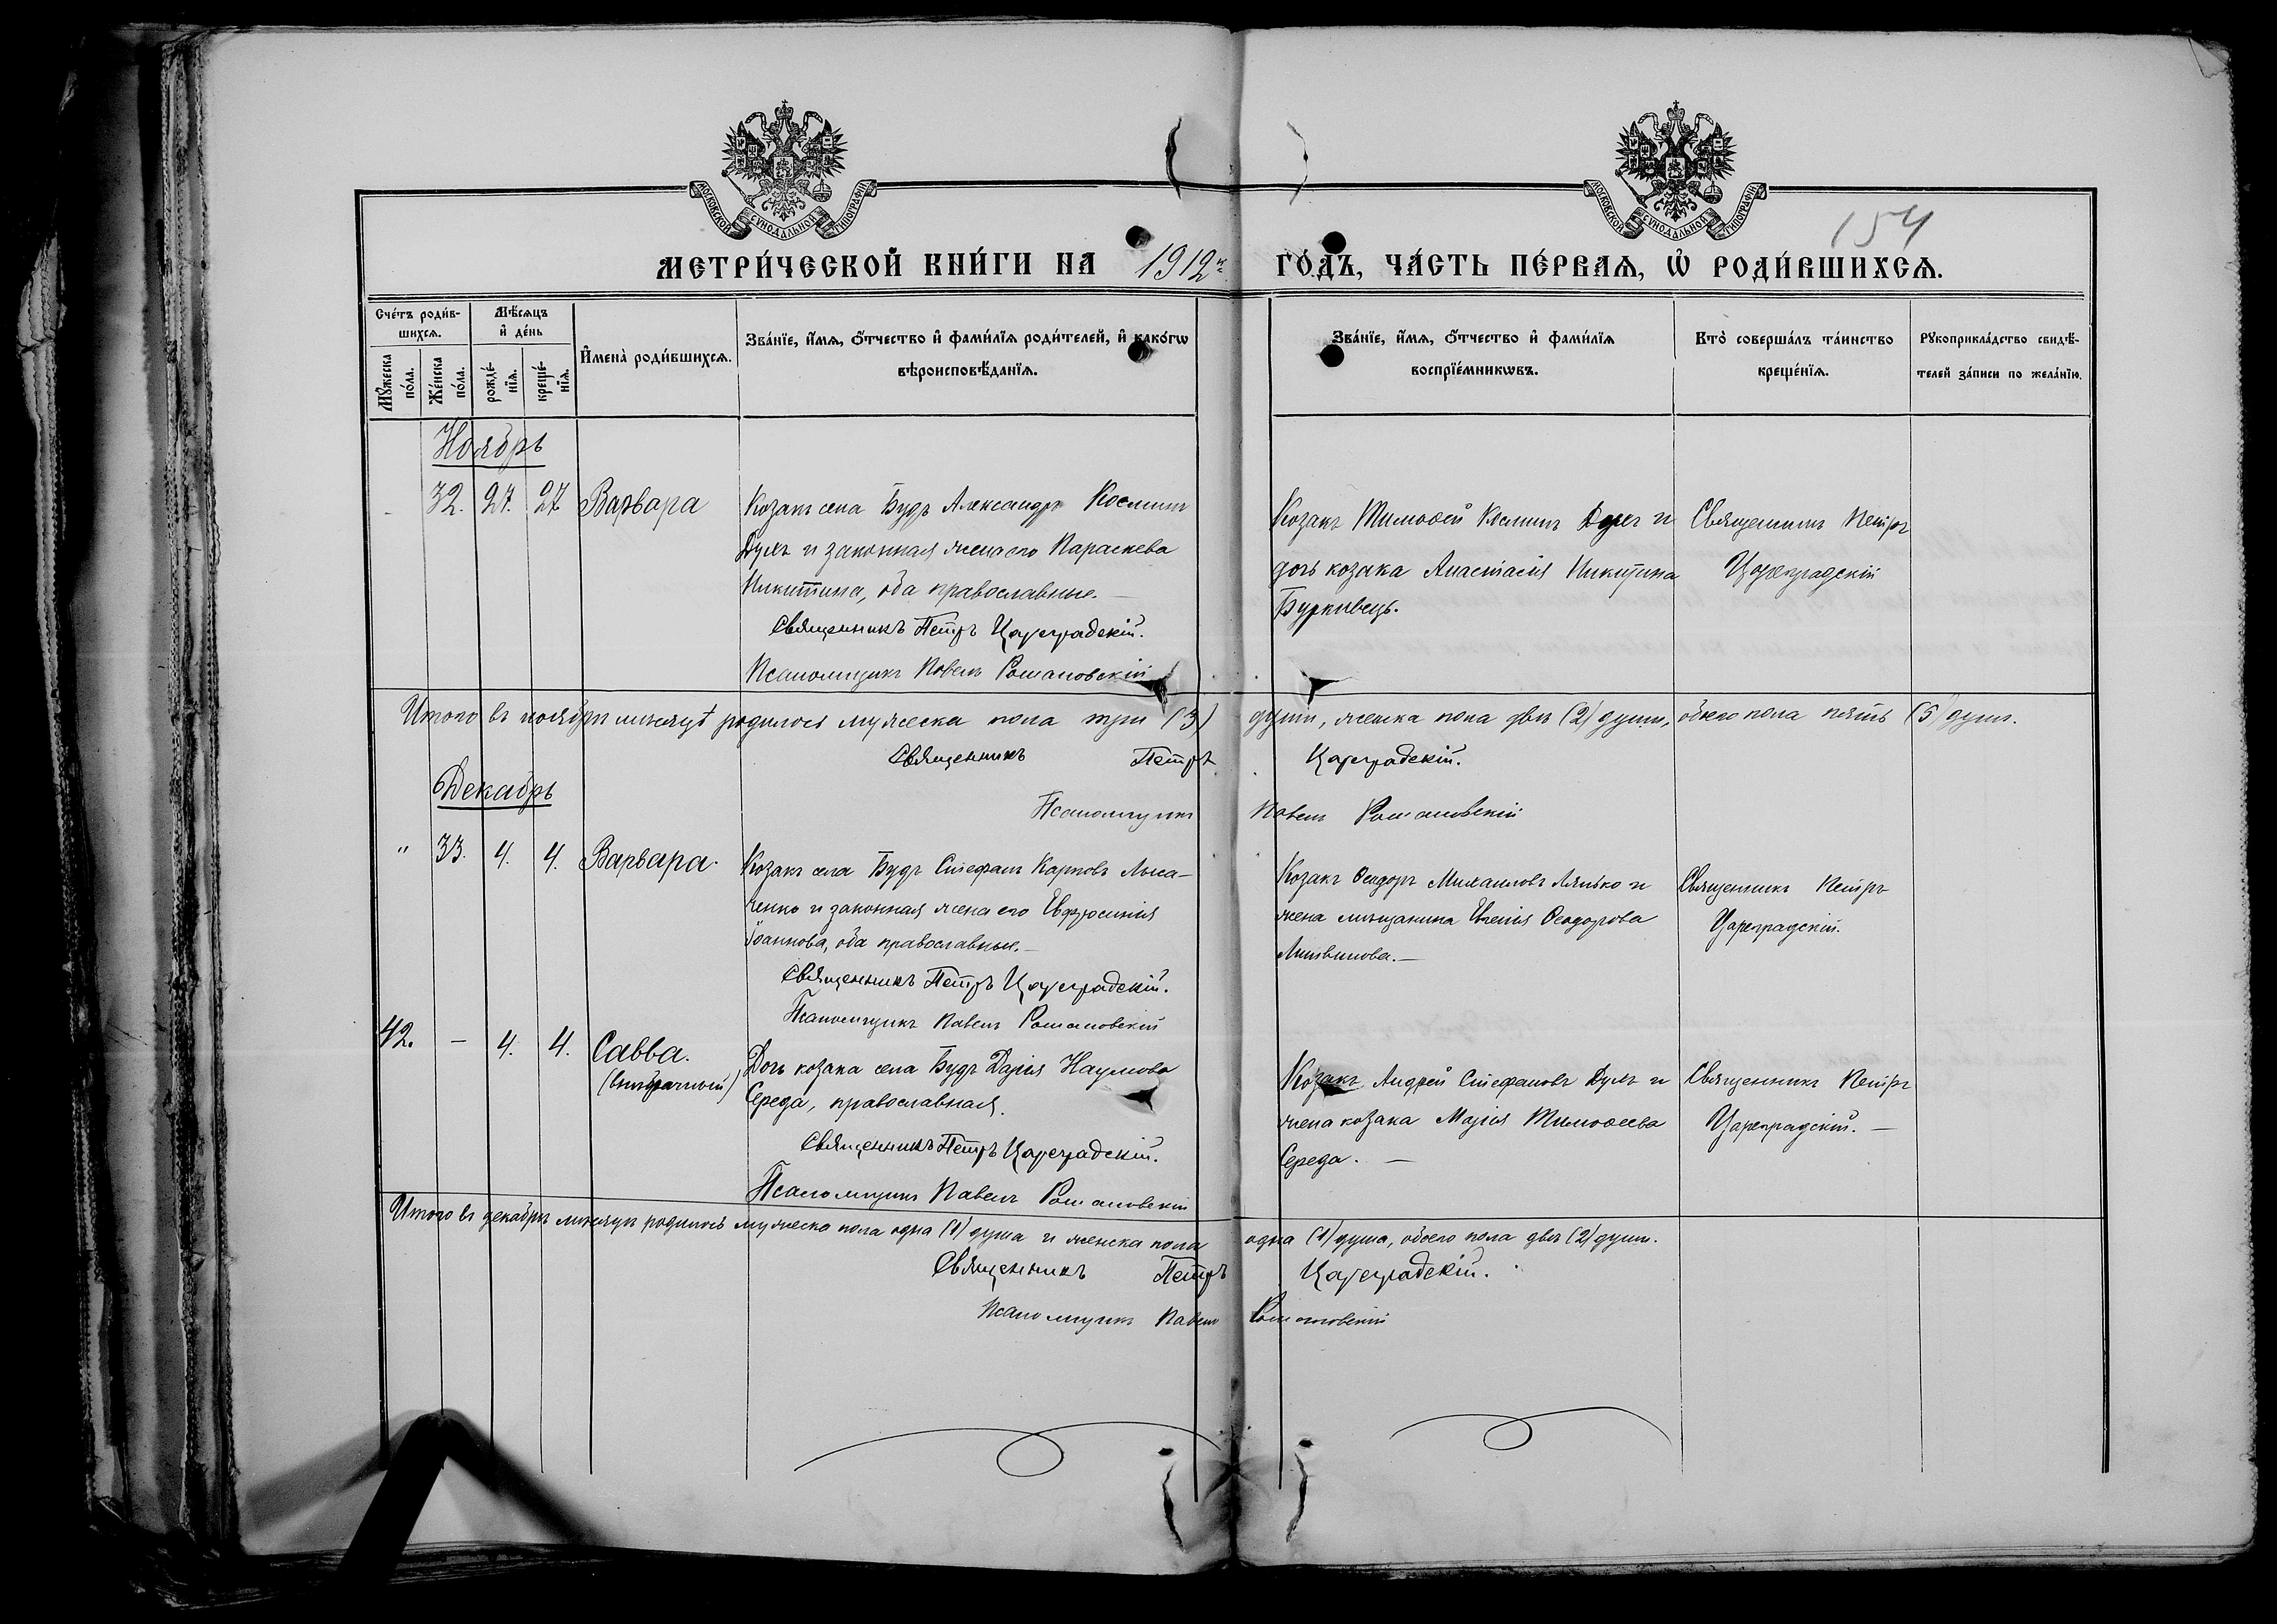 МОСКОВСКОЙ СѴНОДАЛЬНОЙ ТИПОГРАФІИ
МОСКОВСКОЙ СѴНОДАЛЬНОЙ ТИПОГРАФІИ
154
МЕТРИ́ЧЕСКОЙ КНИ́ГИ НА 1912й ГО́ДЪ, ЧА́СТЬ ПЕ́РВАѦ, Ѡ҆ РОДИ́ВШИХСѦ.
Сче́тъ роди́в-
шихсѧ.
Мѣ́сѧцъ
и҆ де́нь
Мꙋ́жеска
по́ла.
Же́нска
по́ла.
рожде́-
нїѧ.
креще́-
нїѧ.
И҆мена̀ роди́вшихсѧ.
Зва́нїе, и҆́мѧ, ѻ҆́тчество и҆ фами́лїѧ роди́телей, и҆ како́гѡ
вѣроисповѣ́данїѧ.
Зва́нїе, и҆́мѧ, ѻ҆́тчество и҆ фами́лїѧ
воспрїе́мникѡвъ.
Кто̀ соверша́лъ та́инство
креще́нїѧ.
Рꙋкоприкла́дство свидѣ́-
телей за́писи по жела́нїю.
Ноябрь
32. 27. 27 Варвара
Козакъ села Будъ Александръ Космин
Думъ и законная жена его Параскева
Никитина, оба православные.
Священникъ Петръ Цареградскій.
Псаломщикъ Павелъ Романовскій
Козакъ Тимоѳей Косминъ Думъ и
дочь козака Анастасія Никитина
Бурковець.
Священникъ Петръ
Цареградскій
Итого въ ноябрѣ мѣсяцѣ родилось мужеска пола три (3) души, женска пола двѣ (2) души, обоего пола пять (5) душъ.
Священникъ Петръ Цареградскій.
Псаломщикъ Павелъ Романовскій
Декабрь
" 33. 4. 4. Варвара.
Козакъ села Будъ Стефанъ Карповъ Лыса-
ченко и законная жена его Евфросинія
Іоаннова, оба православные.—
Священникъ Петръ Цареградскій.
Псаломщикъ Павелъ Романовскій
Козакъ Ѳеодоръ Михаиловъ Лялько и
жена мѣщанина Евгенія Ѳеодорова
Литвинова.—
Священникъ Петръ
Цареградскій.
42. — 4. 4. Савва.
(внѣбрачный)
Дочь козака села Будъ Дарія Наумова
Середа, православная.
Священникъ Петръ Цареградскій.
Псаломщикъ Павелъ Романовскій
Козакъ Андрей Стефановъ Думъ и
жена козака Марія Тимоѳеева
Середа. —
Священникъ Петръ
Цареградскій. —
Итого въ декабрѣ мѣсяцѣ родилось мужеска пола одна (1) душа и женска пола одна (1) душа, обоего пола двѣ (2) души.
Священникъ Петръ Цареградскій.
Псаломщикъ Павелъ Романовскій